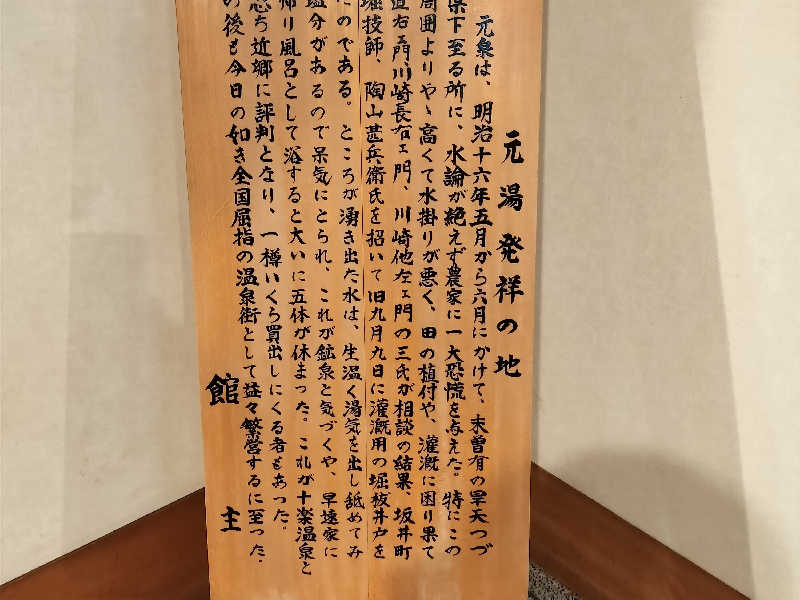 元湯発祥の地
元泉は、明治十六年五月から六月にかけて、末曽有の旱天つづ
県下至る所に、水論が絶えず農家に一大恐慌を与えた。特にこの
周囲よりやゝ高くて水掛りが悪く、田の植付や、灌漑に困り果て
道右ェ門川崎長右ェ門、川崎他左ェ門の三氏が相談の結果、坂井町
堀技師、陶山甚兵衛氏を招いて旧九月九日に灌漑用の堀抜井戸を
たのである。ところが湧き出た水は、生温く湯気を出し舐めてみ
塩分があるので呆気にとられ、これが鉱泉と気づくや、早速家に
帰り風呂として浴すると大いに五体が休まった。これが十楽温泉と
忽ち近郷に評判となり、一樽いくら買出しにくる者もあった。
の後も今日の如き全国屈指の温泉街として益々繁営するに至った。
館主